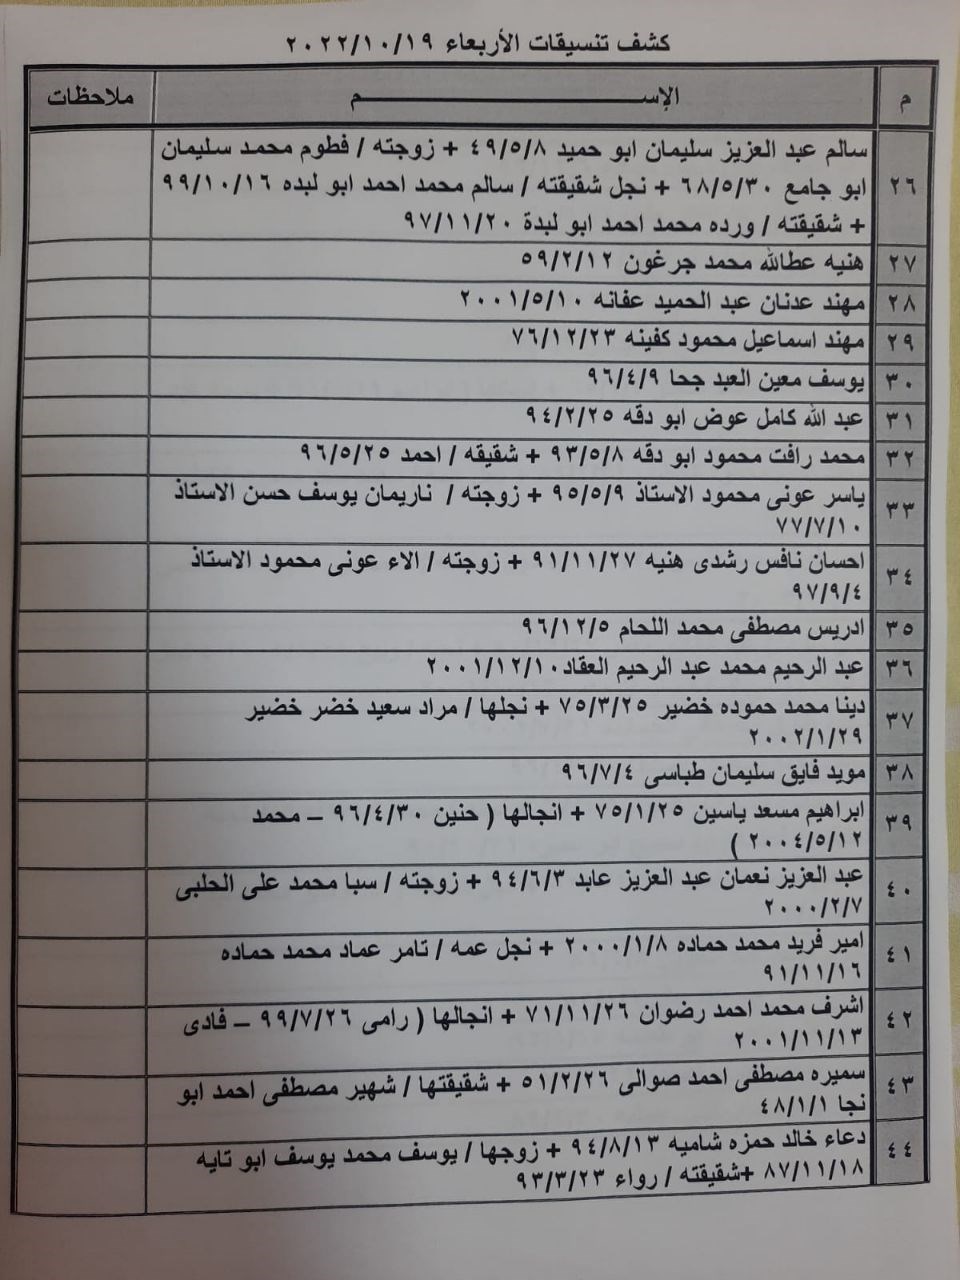 كشف تنسيقات الأربعاء ٢٠٢٢/١٠/١٩
م الإســـــــــــــم ملاحظات
٢٦ سالم عبد العزيز سليمان ابو حميد ٤٩/٥/٨ + زوجته / فطوم محمد سليمان
ابو جامع ٦٨/٥/٣٠ + نجل شقيقته / سالم محمد احمد ابو لبده ٩٩/١٠/١٦
+ شقيقته / ورده محمد احمد ابو لبدة ٩٧/١١/٢٠
٢٧ هنيه عطالله محمد جرغون ٥٩/٢/١٢
٢٨ مهند عدنان عبد الحميد عفانه ٢٠٠١/٥/١٠
٢٩ مهند اسماعيل محمود كفينه ٧٦/١٢/٢٣
٣٠ يوسف معين العبد جحا ٩٦/٤/٩
٣١ عبد الله كامل عوض ابو دقه ٩٤/٢/٢٥
٣٢ محمد رافت محمود ابو دقه ٩٣/٥/٨ + شقيقه / احمد ٩٦/٥/٢٥
٣٣ ياسر عونى محمود الاستاذ ٩٥/٥/٩ + زوجته / ناريمان يوسف حسن الاستاذ
٧٧/٧/١٠
٣٤ احسان نافس رشدى هنيه ٩١/١١/٢٧ + زوجته / الاء عونى محمود الاستاذ
٩٧/٩/٤
٣٥ ادريس مصطفى محمد اللحام ٩٦/١٢/٥
٣٦ عبد الرحيم محمد عبد الرحيم العقاد ٢٠٠١/١٢/١٠
٣٧ دينا محمد حموده خضير ٧٥/٣/٢٥ + نجلها / مراد سعيد خضر خضير
٢٠٠٢/١/٢٩
٣٨ مويد فايق سليمان طباسى ٩٦/٧/٤
٣٩ ابراهيم مسعد ياسين ٧٥/١/٢٥ + انجالها ( حنين ٩٦/٤/٣٠ – محمد
٢٠٠٤/٥/١٢ )
٤٠ عبد العزيز نعمان عبد العزيز عابد ٩٤/٦/٣ + زوجته / سبا محمد على الحلبى
٢٠٠٠/٢/٧
٤١ امير فريد محمد حماده ٢٠٠٠/١/٨ + نجل عمه / تامر عماد محمد حماده
٩١/١١/١٦
٤٢ اشرف محمد احمد رضوان ٧١/١١/٢٦ + انجالها ( رامى ٩٩/٧/٢٦ – فادى
٢٠٠١/١١/١٣
٤٣ سميره مصطفى احمد صوالى ٥١/٢/٢٦ + شقيقتها / شهير مصطفى احمد ابو
نجا ٤٨/١/١
٤٤ دعاء خالد حمزه شاميه ٩٤/٨/١٣ + زوجها / يوسف محمد يوسف ابو تايه
٨٧/١١/١٨ +شقيقته / رواء ٩٣/٣/٢٣